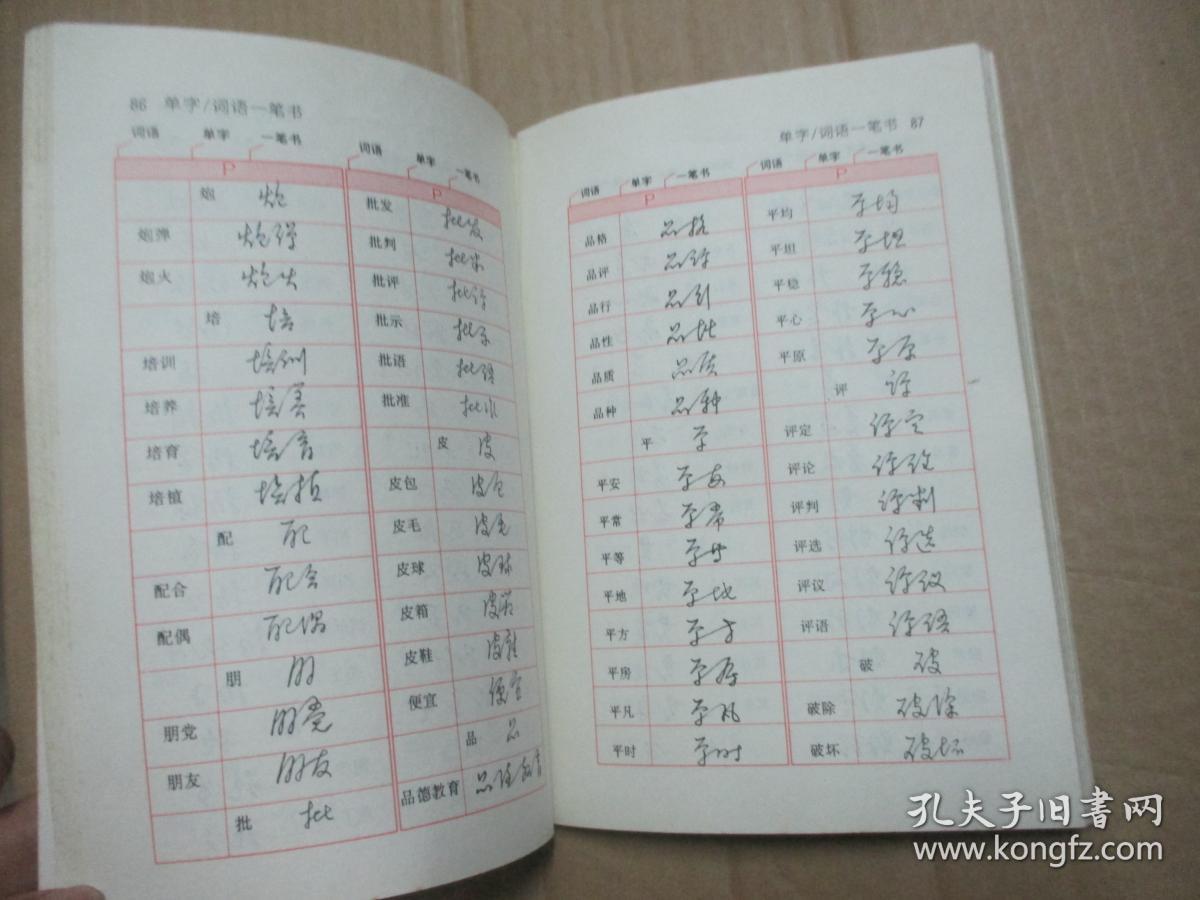 86 单字/词语一笔书
词语 单字 一笔书 词语 单字 一笔书
P
炮 炮
炮弹 炮弹
炮火 炮火
培 培
培训 培训
培养 培养
培育 培育
培植 培植
配 配
配合 配合
配偶 配偶
朋 朋
朋党 朋党
朋友 朋友
批 批
P
批发 批发
批判 批判
批评 批评
批示 批示
批语 批语
批准 批准
皮 皮
皮包 皮包
皮毛 皮毛
皮球 皮球
皮箱 皮箱
皮鞋 皮鞋
便宜 便宜
品 品
品德教育 品德教育
单字/词语一笔书 87
词语 单字 一笔书 词语 单字 一笔书
P
品格 品格
品评 品评
品行 品行
品性 品性
品质 品质
品种 品种
平 平
平安 平安
平常 平常
平等 平等
平地 平地
平方 平方
平房 平房
平凡 平凡
平时 平时
P
平均 平均
平坦 平坦
平稳 平稳
平心 平心
平原 平原
评 评
评定 评定
评论 评论
评判 评判
评选 评选
评议 评议
评语 评语
破 破
破除 破除
破坏 破坏
孔夫子旧书网
www.kongfz.com